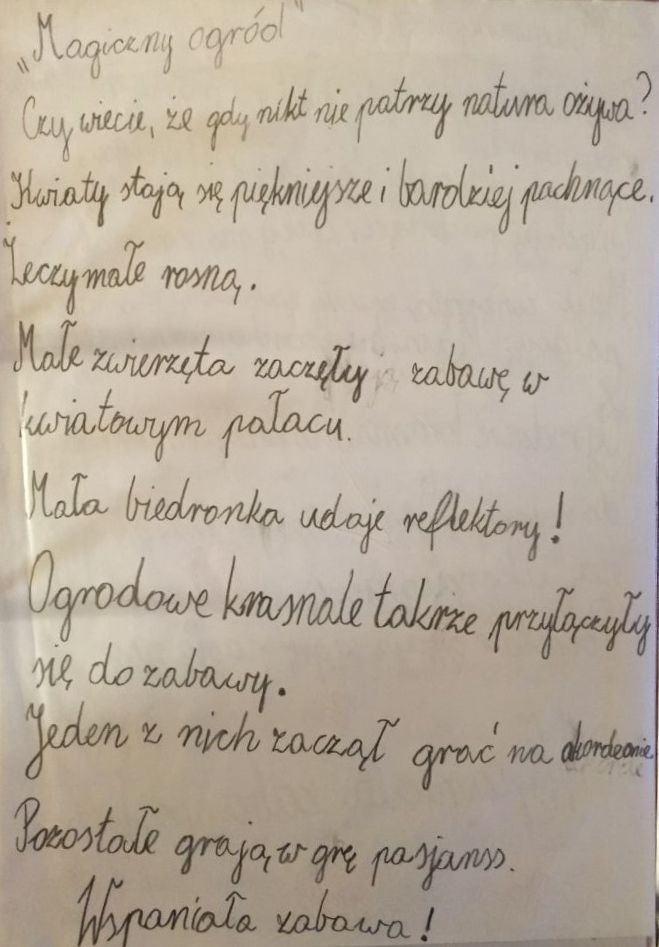 „Magiczny ogród"
Czy wiecie, że gdy nikt nie patrzy natura ożywa?
Kwiaty stają się piękniejsze i bardziej pachnące.
małe rosną.
Małe zwierzęta zaczęły zabawę w
kwiatowym pałacu.
Mała biedronka udaje reflektory!
Ogrodowe krasnale takrze przyłączyły
się do zabawy.
Jeden z nich zaczął grać na akordeonie
Pozostałe grają w grę pasjanss.
Wspaniała zabawa!